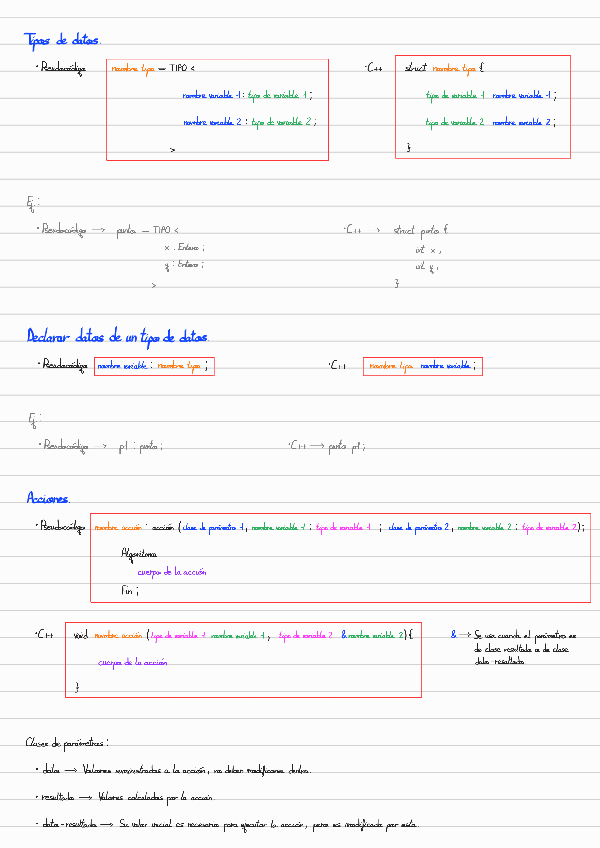 Tipos de datos.
• Pseudocódigo nombre tipo = TIPO <
nombre variable 1 : tipo de variable 1 ;
nombre variable 2 : tipo de variable 2 ;
>
• C++ struct nombre tipo {
tipo de variable 1 nombre variable 1 ;
tipo de variable 2 nombre variable 2 ;
}
Ej :
• Pseudocódigo → punto = TIPO <
x : Entero ;
y : Entero ;
>
• C++ → struct punto {
int x ;
int y ;
}
Declarar datos de un tipo de datos.
• Pseudocódigo nombre variable : nombre tipo ;
• C++ nombre tipo nombre variable ;
Ej :
• Pseudocódigo → p1 : punto ;
• C++ → punto p1 ;
Acciones.
• Pseudocódigo nombre acción : acción ( clase de parámetro 1 , nombre variable 1 : tipo de variable 1 ; clase de parámetro 2 , nombre variable 2 : tipo de variable 2 ) ;
Algoritmo
cuerpo de la acción
Fin ;
• C++ void nombre acción ( tipo de variable 1 nombre variable 1 , tipo de variable 2 & nombre variable 2 ) {
cuerpo de la acción
}
& → Se usa cuando el parámetro es
de clase resultado o de clase
dato resultado
Clases de parámetros :
• dato → Valores suministrados a la acción, no deben modificarse dentro.
• resultado → Valores calculados por la acción.
• dato - resultado → Su valor inicial es necesario para ejecutar la acción, pero es modificado por esta.